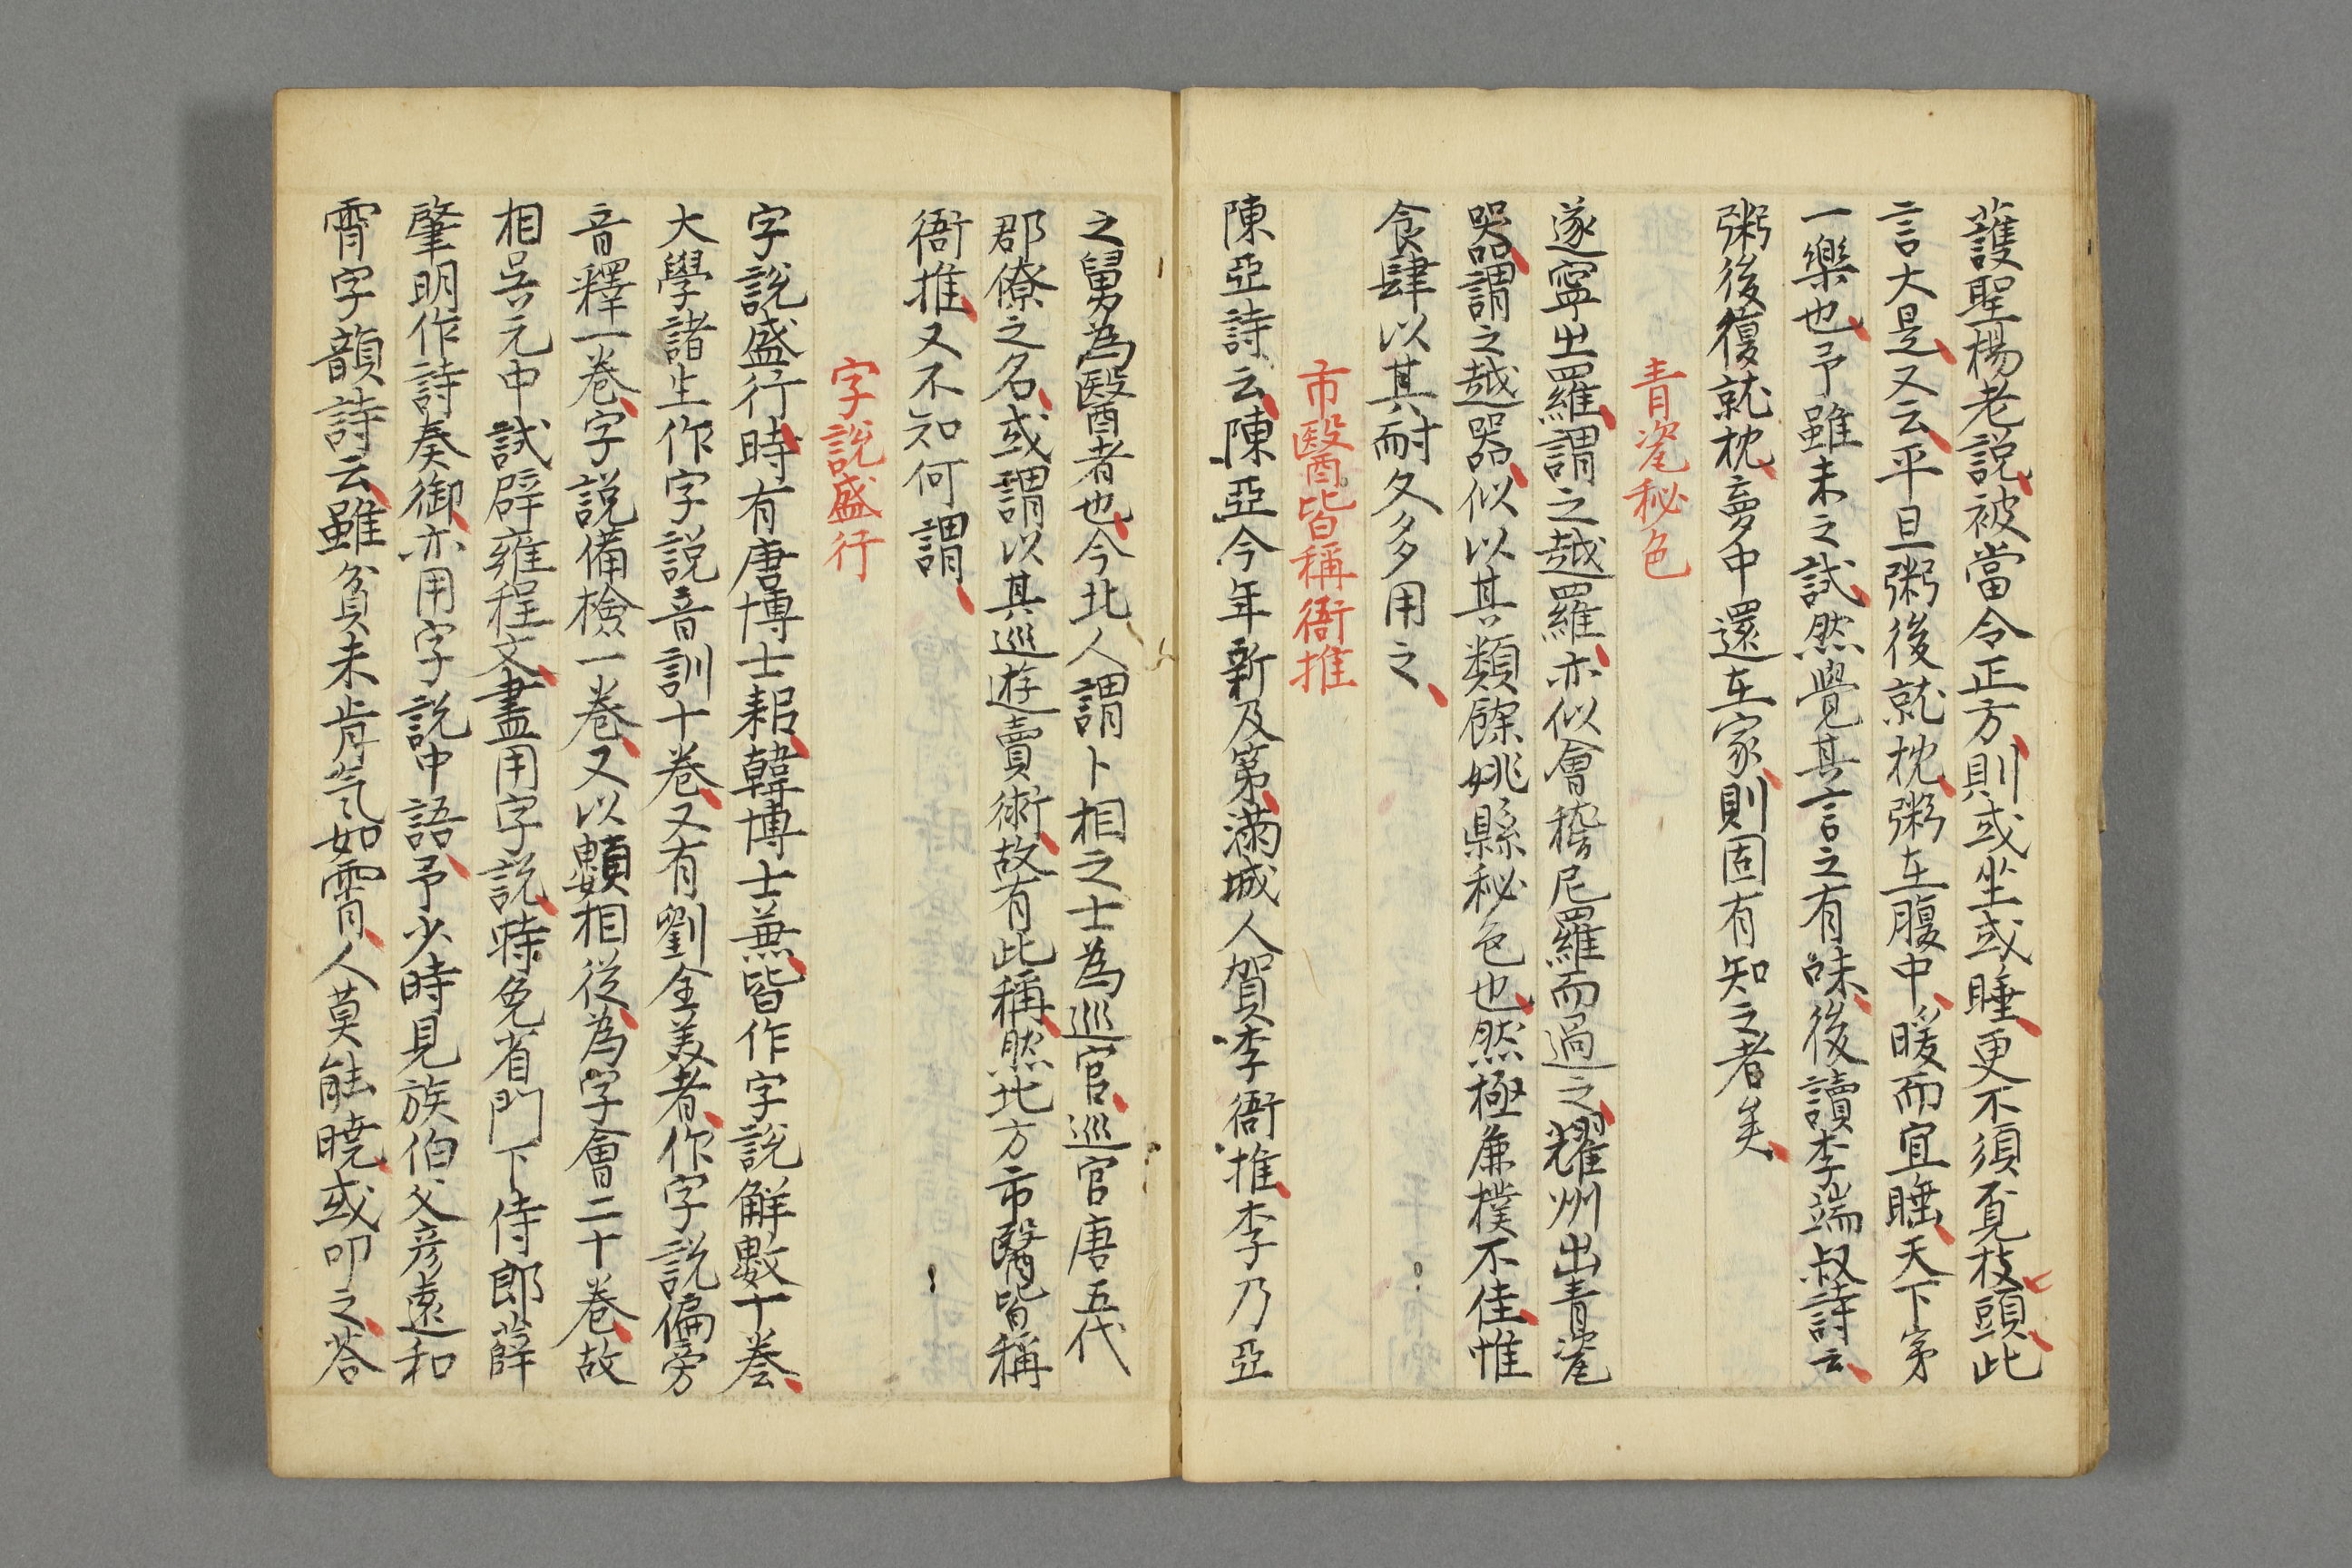 護聖楊老說被當令正方則或坐或睡更不須覓枕頭此
言大是又云平旦粥後就枕粥在腹中暖而宜睡天下第
一樂也予雖未之試然覺其言之有味後讀李端叔詩云
粥後復就枕夢中還在家則固有知之者矣
青瓷秘色
遂寧出羅謂之越羅亦似會稽尼羅而過之耀州出青瓷
器謂之越器似以其類餘姚縣秘色也然極麁樸不佳惟
食肆以其耐久多用之
市醫皆稱衙推
陳亞詩云陳亞今年新及第滿城人賀李衙推李乃亞
之舅為醫者也今北人謂卜相之士為巡官巡官唐五代
郡僚之名或謂以其巡遊賣術故有此稱然北方市醫皆稱
衙推又不知何謂
字說盛行
字說盛行時有唐博士耜韓博士兼皆作字說解數十卷
大學諸生作字說音訓十卷又有劉全美者作字說偏旁
音釋一卷字說備檢一卷又以類相從為字會二十卷故
相吳元中試辟雍程文盡用字說特免省門下侍郎薛
肇明作詩奏御亦用字說中語予少時見族伯父彥遠和
霄字韻詩云雖貧未肯气如霄人莫能曉或叩之荅